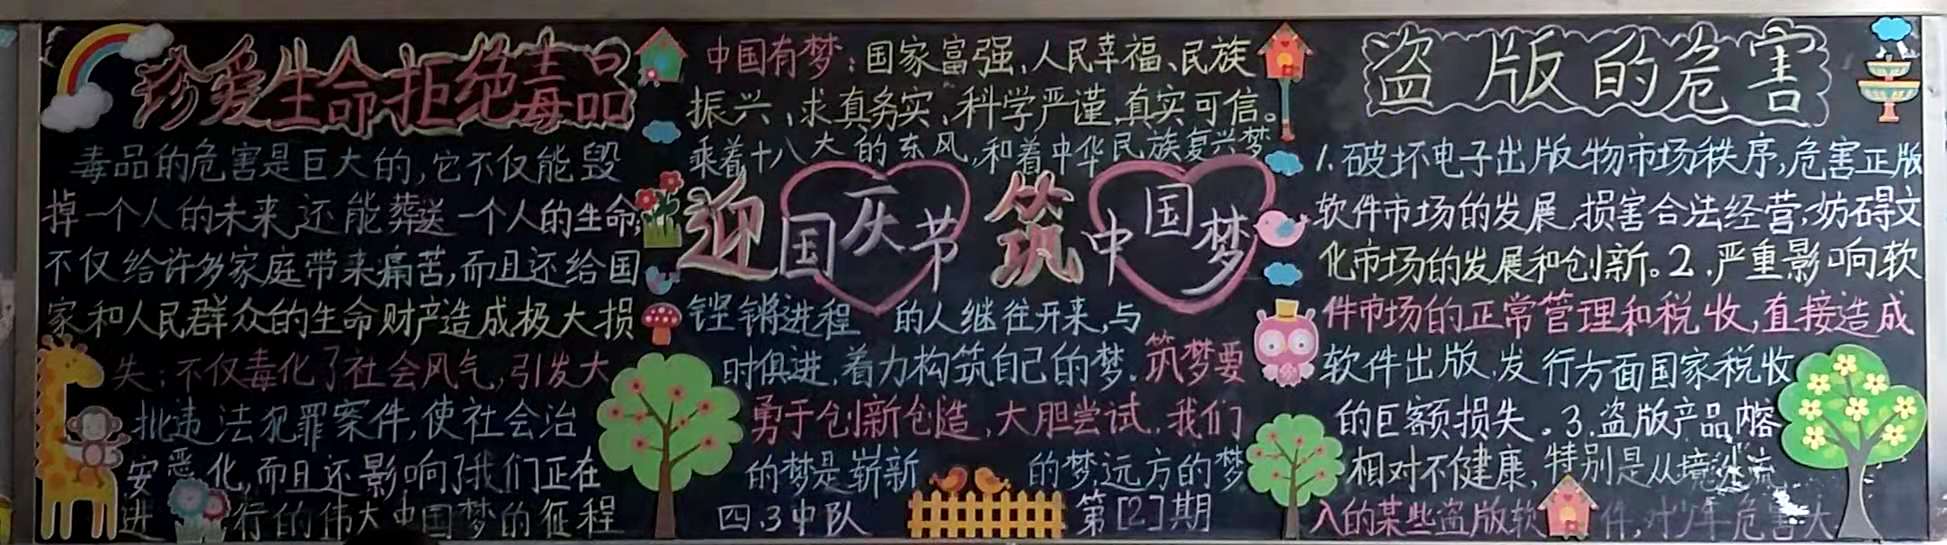 珍爱生命拒绝毒品
毒品的危害是巨大的,它不仅能毁
掉一个人的未来,还能葬送一个人的生命,
不仅给许多家庭带来痛苦,而且还给国
家和人民群众的生命财产造成极大损
失;不仅毒化了社会风气,引发大
批违法犯罪案件,使社会治
安恶化,而且还影响了我们正在
进行的伟大中国梦的征程
中国有梦:国家富强、人民幸福、民族
振兴、求真务实、科学严谨,真实可信。
乘着十八大的东风,和着中华民族复兴梦
迎国庆节 筑中国梦
铿锵进程 的人继往开来,与
时俱进,着力构筑自己的梦.筑梦要
勇于创新创造,大胆尝试.我们
的梦是崭新 的梦,远方的梦
四.3中队 第[2]期
盗版的危害
1.破坏电子出版物市场秩序,危害正版
软件市场的发展,损害合法经营,妨碍文
化市场的发展和创新。2.严重影响软
件市场的正常管理和税收,直接造成
软件出版.发行方面国家税收
的巨额损失。3.盗版产品内容
相对不健康,特别是从境外流
入的某些盗版软件,对少年危害大